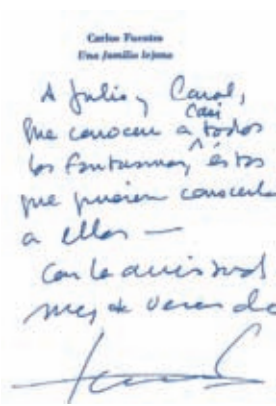 Carlos Fuentes
Una familia lejana
A Julio y Carol,
que conocen a casi todos
los fantasmas, éstos
que quieren conocerlos
a ellos —
con la amistad
muy de veras de